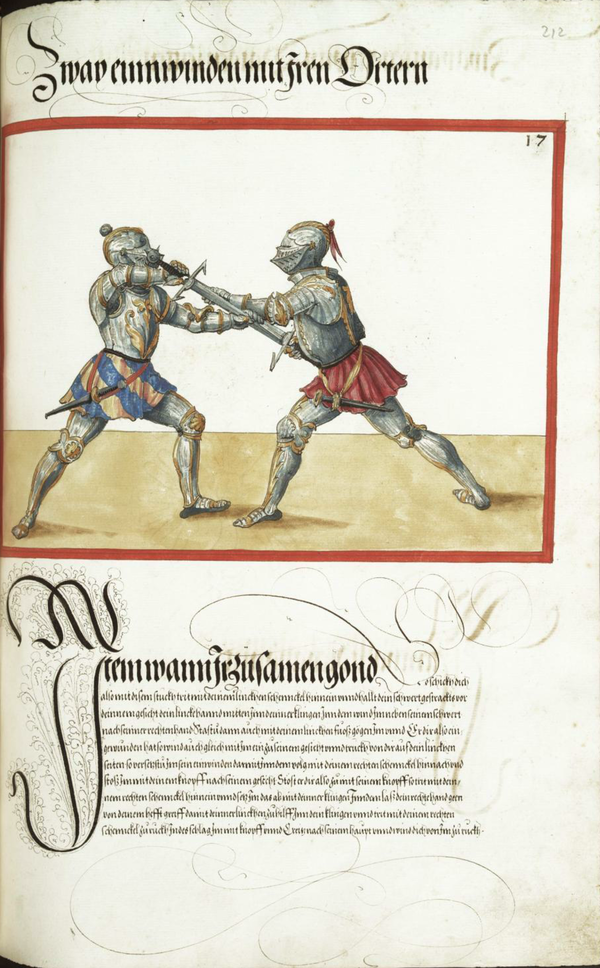 212
Zway einnwinden mit Jren Ortern
17
Item wann Jr zusamen gond So schickh dich
also mit disem stuckh trit mit deinem lincken schennckel hinein unnd hallt dein schwert gestrackts vor
deinem gesicht dein lincke hannd mitten Jnn deiner klingen Jnn dem wind Jm neben seinem schwert
nach seiner rechten hand Stast du dann auch mit deinem lincken fuoß gögen Jm unnd Er dir also ein-
gewunden hat so wind auch gleich mit Jm ein zu seinem gesicht unnd truckh von dir auf dein lincken
seiten so versetzst du Jm sein einwinden damit Jnn dem volg mit deinem rechten schennckel hinnach und
stoß Jm mit deinem knopff nach seinem gesicht Stost er dir also zu mit seinem knopff so trit mit dein-
nem rechten schennckel hinnein unnd setz Jm das ab mit deiner klingen Jnn dem laß dein rechte hand
von deinem hefft greiff damit deiner lincken zu hilff Jnn dein klingen unnd trit mit deinem rechten
schennckel zu ruckh Jndes schlag Jm mit knopff unnd Creutz nach seinem haupt unnd wind dich von Jm zu ruckh.